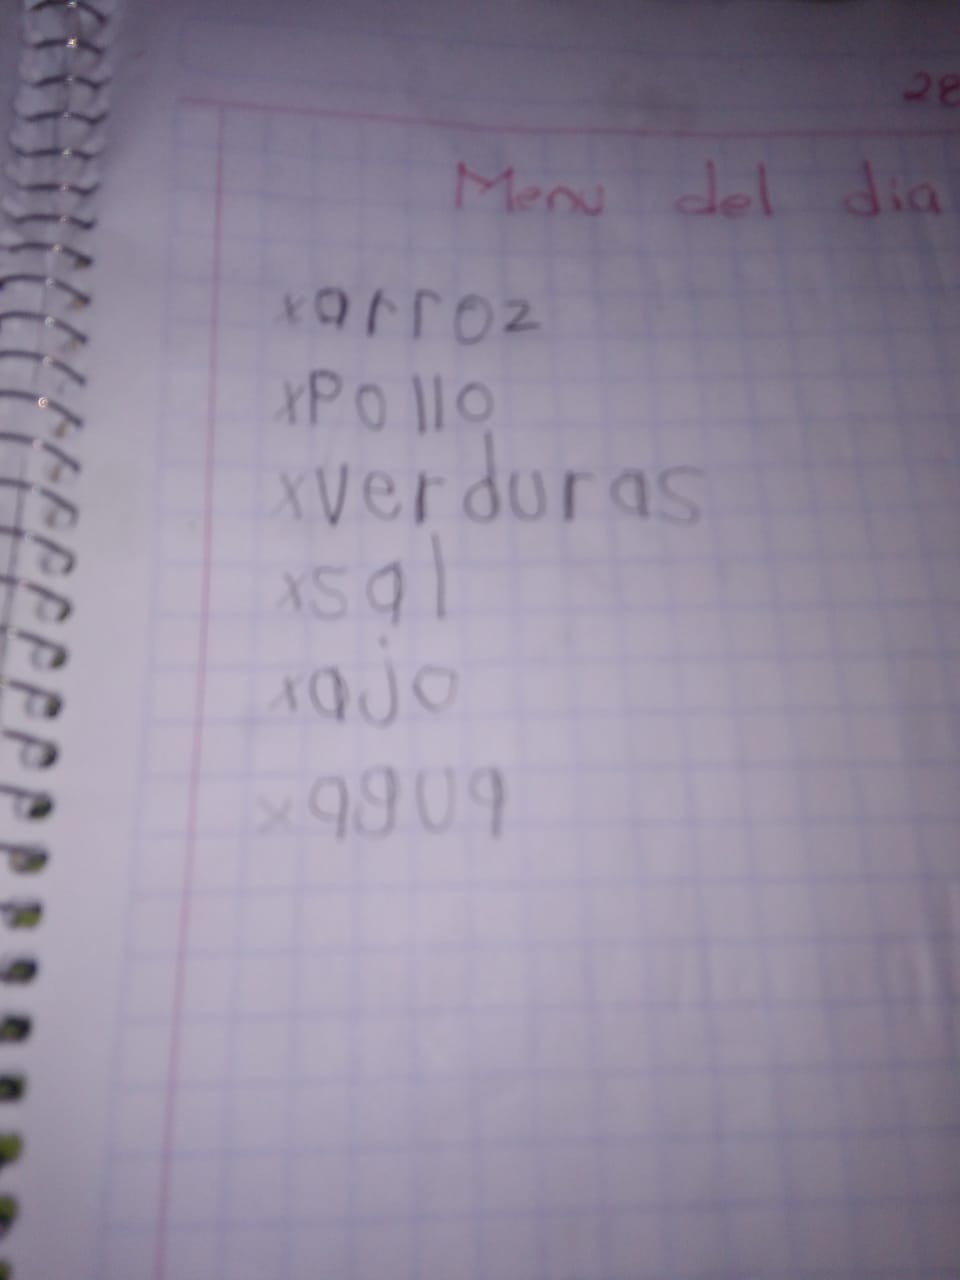 28
Menu del dia
xarroz
xPollo
xverduras
xsal
xajo
xagua